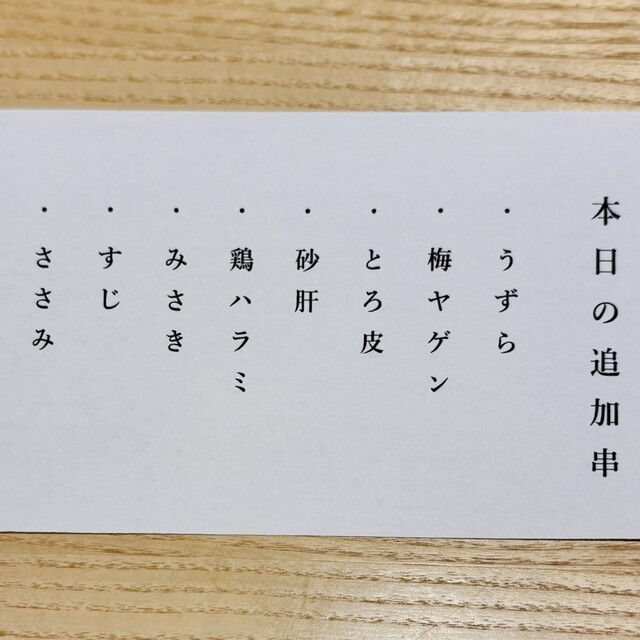 本日の追加串
・うずら
・梅ヤゲン
・とろ皮
・砂肝
・鶏ハラミ
・みさき
・すじ
・ささみ